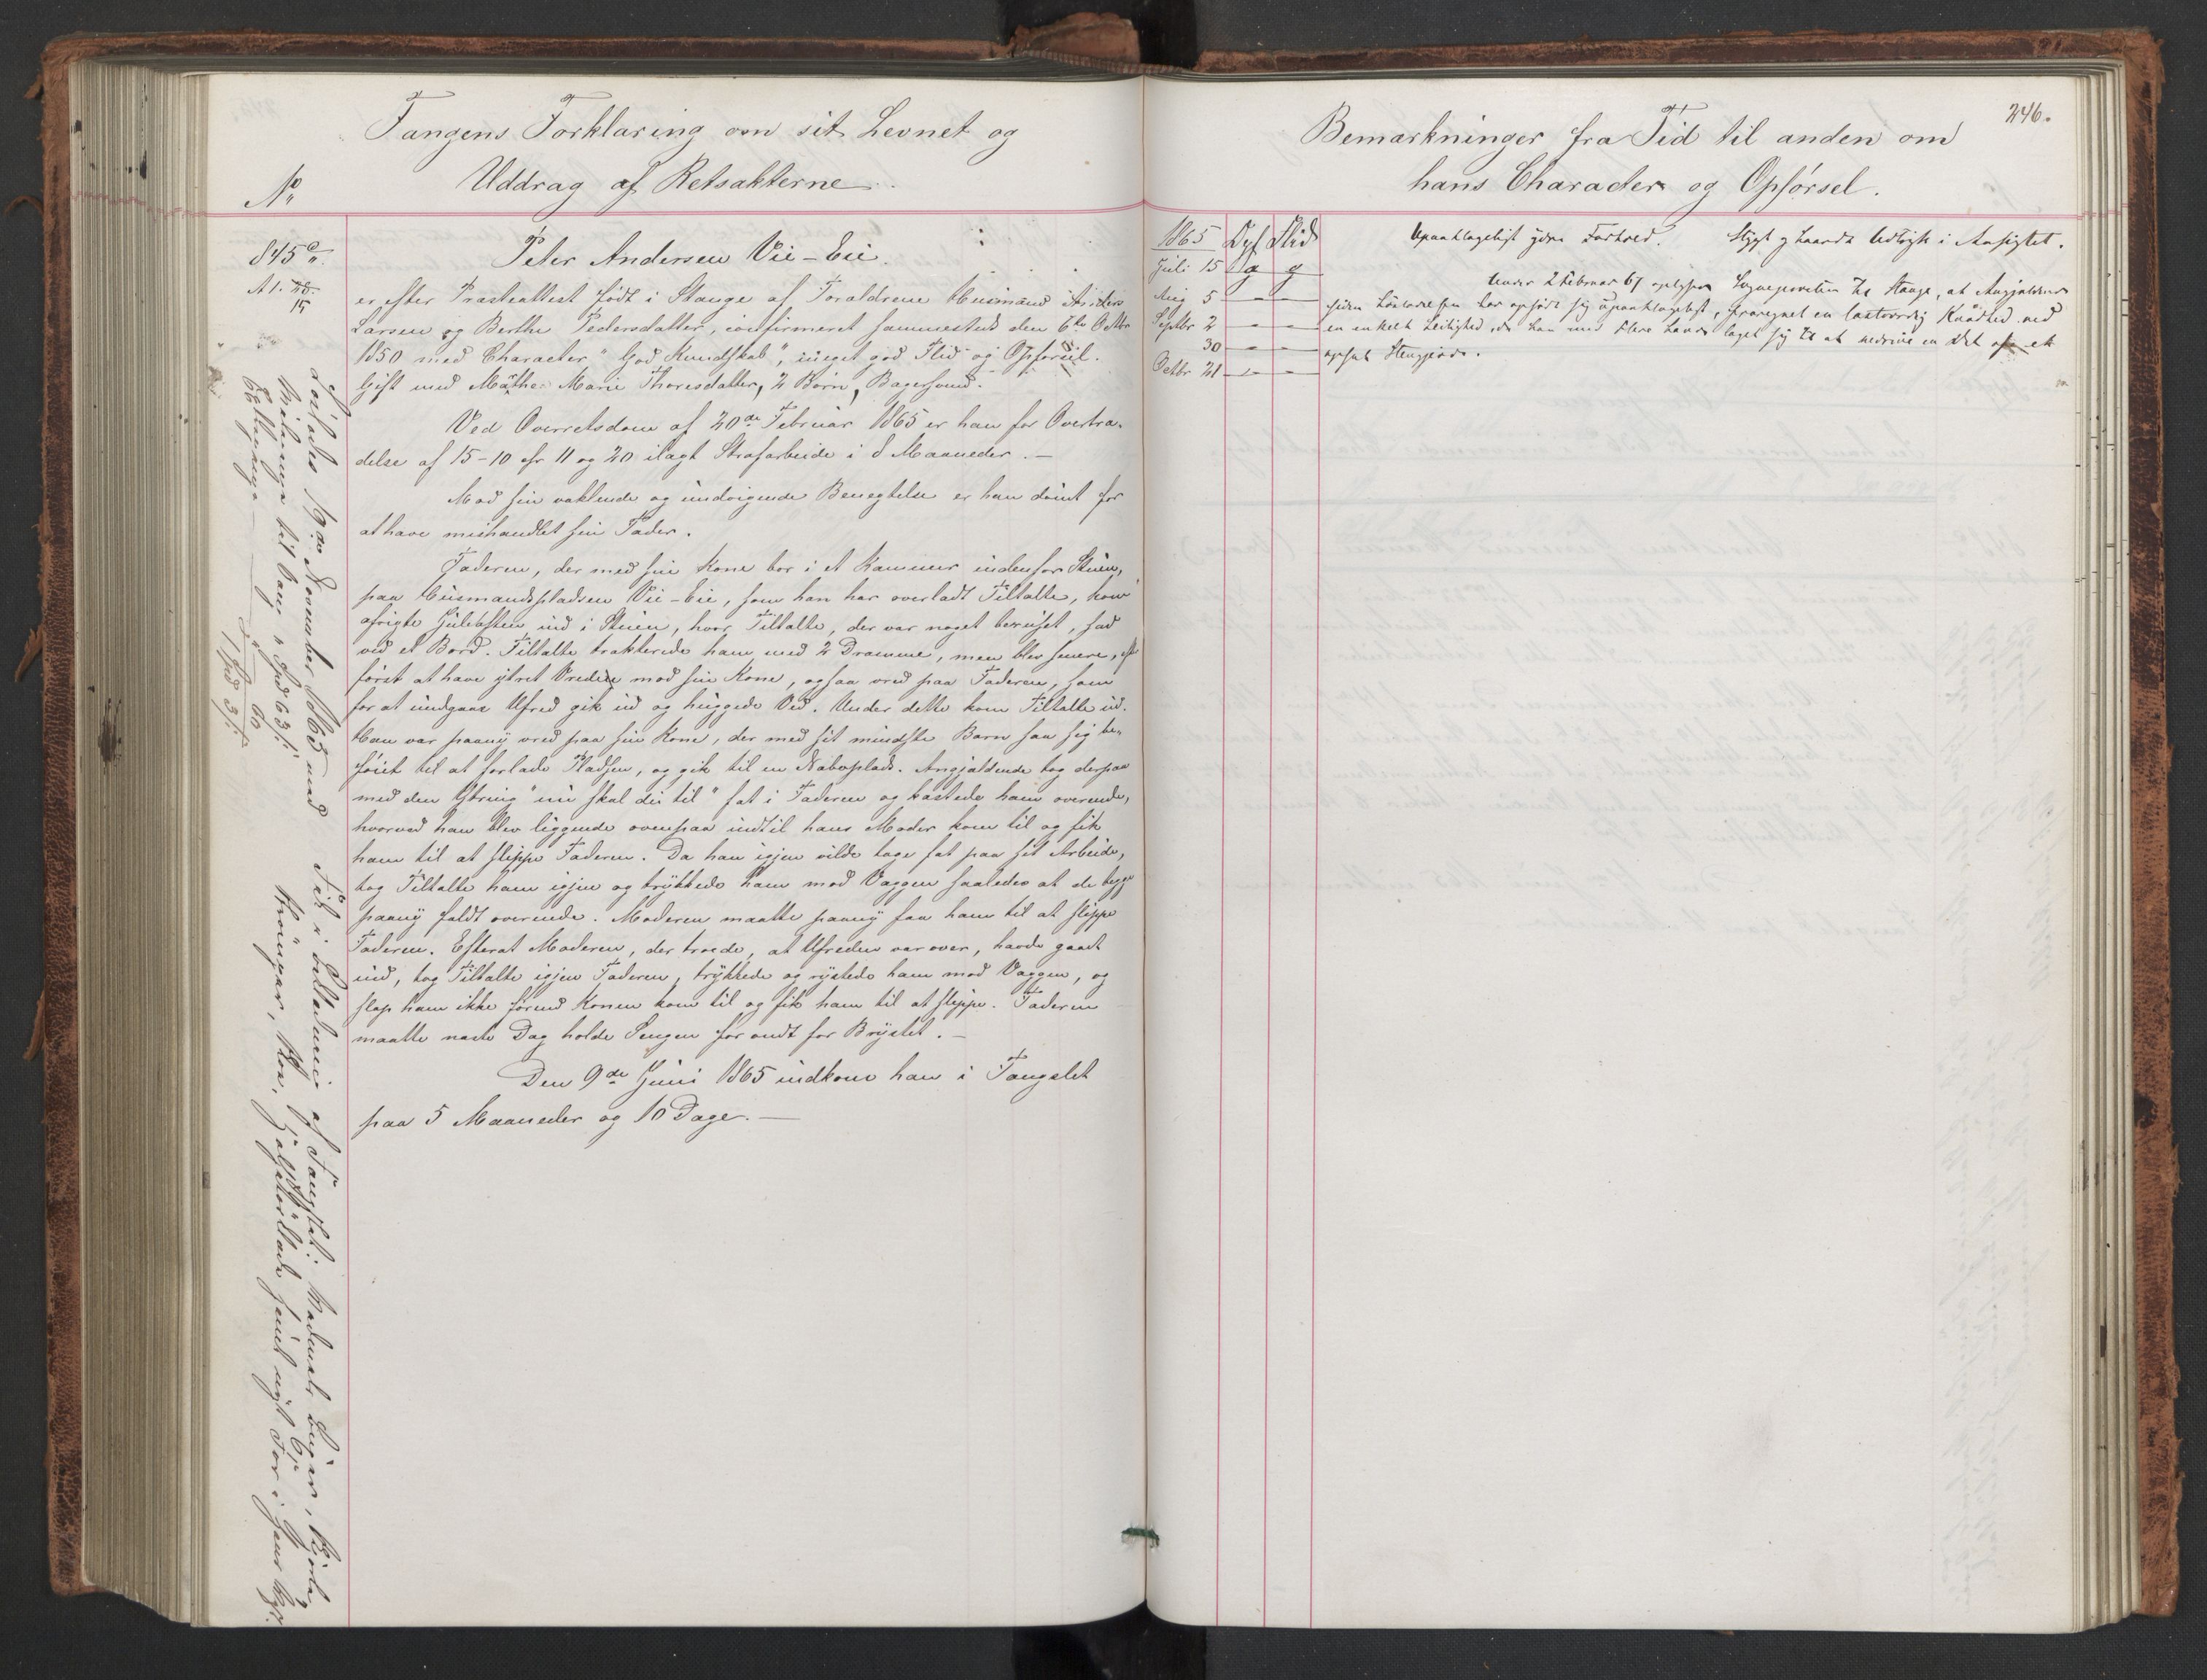 Fangens Forklaring om sit Levnet og
Uddrag af Retsakterne.
No
845 a.
Peter Andersen Vie-Eie.
er efter Præsteattest født i Stange af Forældrene Huusmand Anders
Larsen og Berthe Pedersdatter, confirmeret sammesteds den 6te Octbr
1850 med Character "God Kundskab", meget god Flid og Opførsel.
Gift med Mathea Marie Thoresdatter, 2 Børn,
Ved Overretsdom af 20de Februar 1865 er han for Overtræ-
delse af 15-10 cfr 11 og 20 ilagt Strafarbeide i 8 Maaneder.-
Mod sin vaklende og undvigende Benegtelse er han dømt for
at have mishandlet sin Fader.
Faderen, der med sin Kone bor i et Kammer indenfor Stuen,
paa Huusmandspladsen Vie-Eie, som han har overladt Tiltalte, kom
afvigte Juleaften ind i Stuen, hvor Tiltalte, der var noget beruset, sad
ved et Bord. Tiltalte trakterede ham med 2 Dramme, men blev senere, efter
først at have ytret Vrede mod sin Kone, ogsaa vred paa Faderen, som
for at undgaae Ufred gik ud og huggede Ved. Under dette kom Tiltalte ud.
Han var paany vred paa sin Kone, der med sit mindste Barn saa sig be-
føiet til at forlade Pladsen, og gik til en Naboplads. Angjældende tog derpaa
med den Ytring "nu skal du til" fat i Faderen og kastede ham overende,
hvorved han blev liggende ovenpaa indtil hans Moder kom til og fik
ham til at slippe Faderen. Da han igjen vilde tage fat paa sit Arbeide,
tog Tiltalte ham igjen og trykkede ham mod Væggen saaledes at de begge
paany faldt overende. Moderen maatte paany faa ham til at slippe
Faderen. Efterat Moderen, der troede, at Ufreden var over, havde gaaet
ind, tog Tiltalte igjen Faderen, trykkede og rystede ham mod Væggen, og
slap ham ikke førend Konen kom til og fik ham til at slippe. Faderen
maatte næste Dag holde Sengen for ondt for Brystet.-
Den 9de Juni 1865 indkom han i Fængslet
paa 5 Maaneder og 10 Dage.-
Løslades 19de November 1865 med
Fik i Beklædning af Fængslet: Vadmels
246.
Bemærkninger fra Tid til anden om
hans Character og Opførsel.
1865 Opf Flid
Juli 15 g g
Aug 5 - -
Septbr 2 - -
30 - -
Octbr 21 - -
Upaaklageligt ydre Forhold. Stygt og haardt Udtryk i Ansigtet.
Under 2 Februar 67 oplyser Sognepresten til Stange, at Angjældende
siden Løsladelsen har opført sig upaaklageligt, fraregnet en lastværdig Raadhed ved
en enkelt Leilighed, da han med flere havde laget sig til at nedrive en Del af et
opsat Steengjærde.